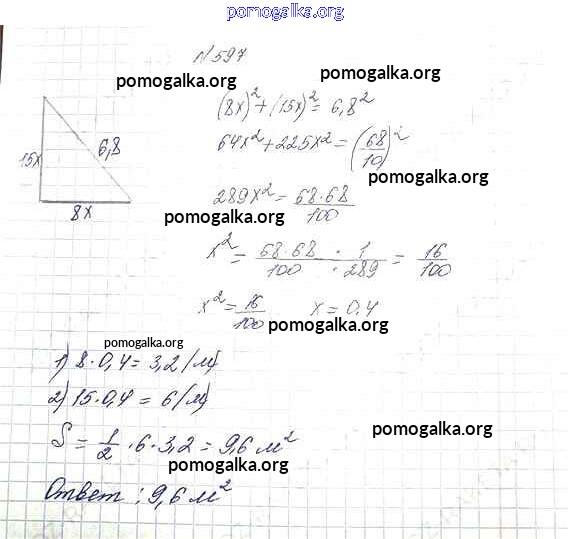 pomogalka.org
№597
pomogalka.org
pomogalka.org
(8x)² + (15x)² = 6,8²
64x² + 225x² = (68/10)²
15x
6,8
8x
pomogalka.org
289x² = 68·68/100
pomogalka.org
x² = 68·68/100 · 1/289 = 16/100
x² = 16/100 x = 0,4
pomogalka.org
pomogalka.org
1) 8·0,4 = 3,2 (м)
2) 15·0,4 = 6 (м)
S = 1/2 · 6 · 3,2 = 9,6 м²
pomogalka.org
pomogalka.org
Ответ: 9,6 м²